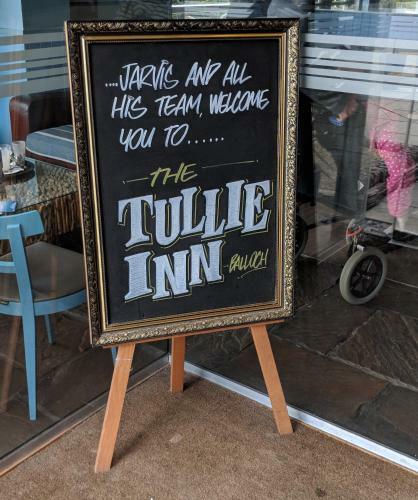 ...JARVIS AND ALL
HIS TEAM, WELCOME
YOU TO......
THE
TULLIE
INN BALLOCH